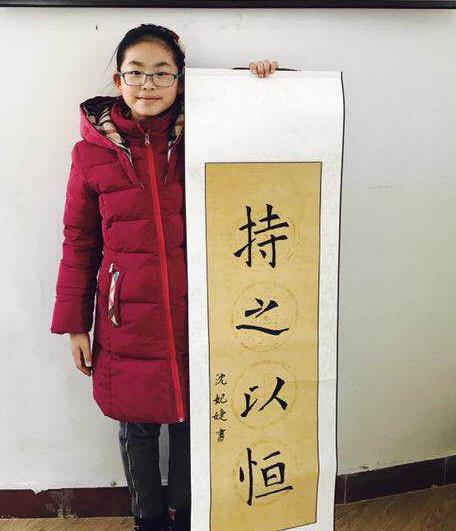 持之以恒
沈妃婕書